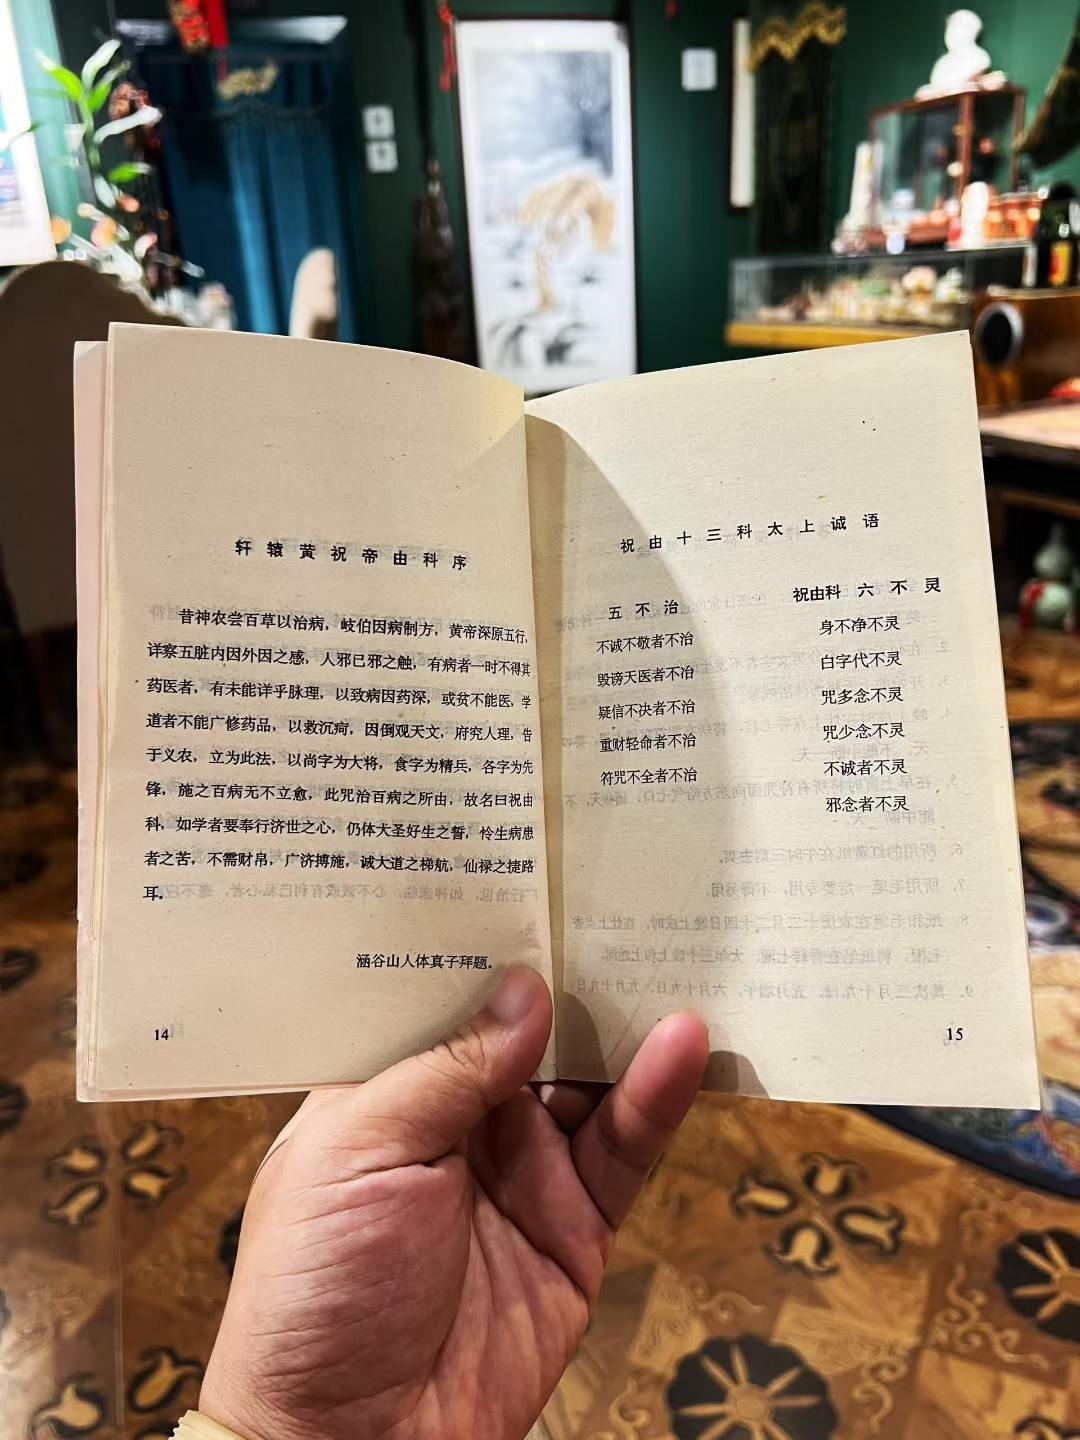 轩辕黄祝帝由科序
昔神农尝百草以治病，岐伯因病制方，黄帝深原五行，
详察五脏内因外因之感，人邪已邪之触，有病者一时不得其
药医者，有未能详乎脉理，以致病因药深，或贫不能医，学
道者不能广修药品，以救沉疴，因倒观天文，府究人理，告
于义农，立为此法，以尚字为大将，食字为精兵，各字为先
锋，施之百病无不立愈，此咒治百病之所由，故名曰祝由
科，如学者要奉行济世之心，仍体大圣好生之誓，伶生病患
者之苦，不需财帛，广济搏施，诚大道之梯航，仙禄之捷路
耳。
涵谷山人体真子拜题。
14
祝由十三科太上诚语
五不治
不诚不敬者不治
毁谤天医者不冶
疑信不决者不治
重财轻命者不治
符咒不全者不治
祝由科 六不灵
身不净不灵
白字代不灵
咒多念不灵
咒少念不灵
不诚者不灵
邪念者不灵
15